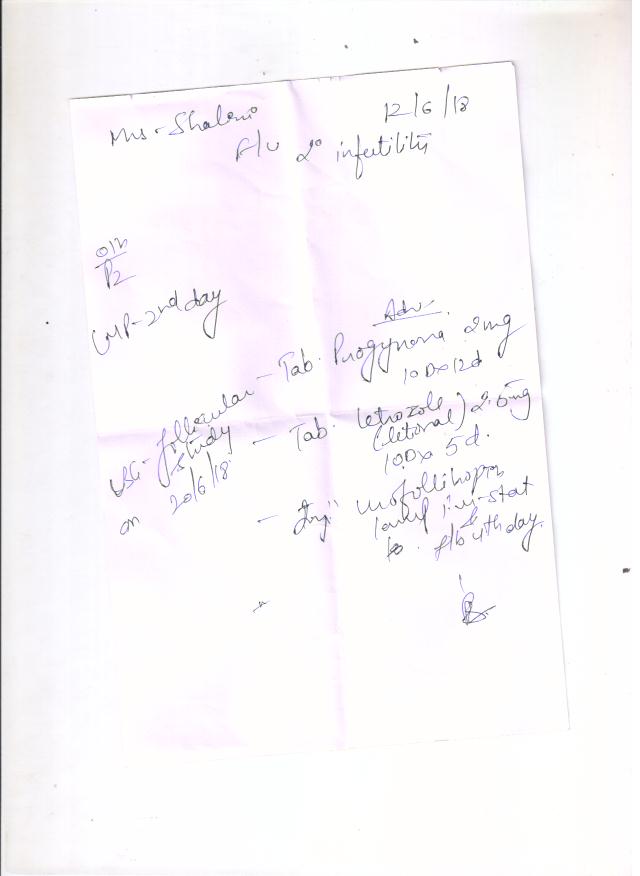 Mrs. Shalini
12/6/18
F/U 2° infertility
O/H
P2
LMP - 2nd day
Adv
- Tab. Progynova 2mg
1OD x 12d
USG - follicular study on 20/6/18
- Tab. letrozole
(letoval) 2.5mg
1OD x 5d.
- Inj
1amp i/m - stat
f/b 4th day.